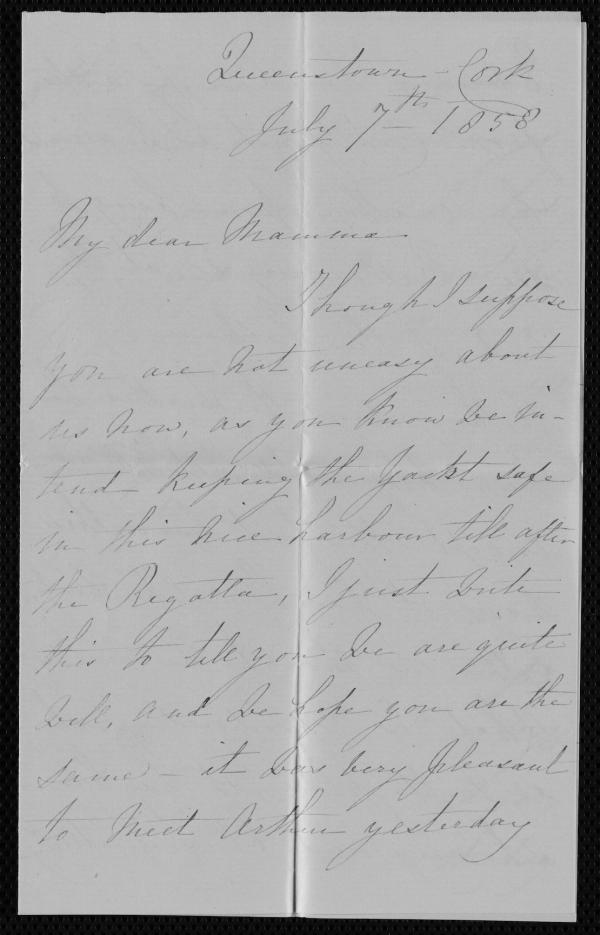 Queenstown - Cork
July 7th 1858
My dear Mamma
Though I suppose
you are not uneasy about
us now, as you know we in-
tend keeping the Yacht safe
in this nice harbour till after
the Regatta, I just write
this to tell you we are quite
well, and we hope you are the
same - it was very pleasant
to meet Arthur yesterday